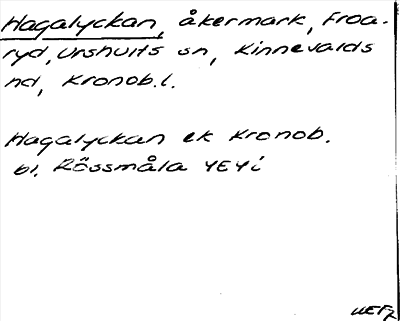 Hagalyckan, åkermark, Froa-
ryd, Urshults sn, Kinnevalds
hd, Kronob.l.
Hagalyckan ek Kronob.
bl. Rössmåla 4E4i